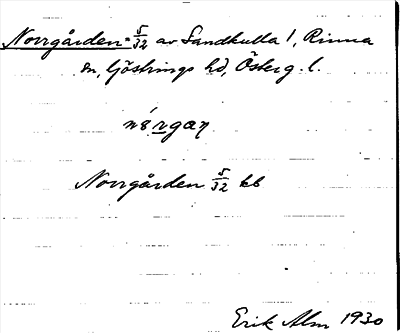 Norrgården = 5/32 av Sandkulla 1, Rinna
sn, Göstrings hd, Österg. l.
Norrgården 5/32 kb
Erik Alm 1930